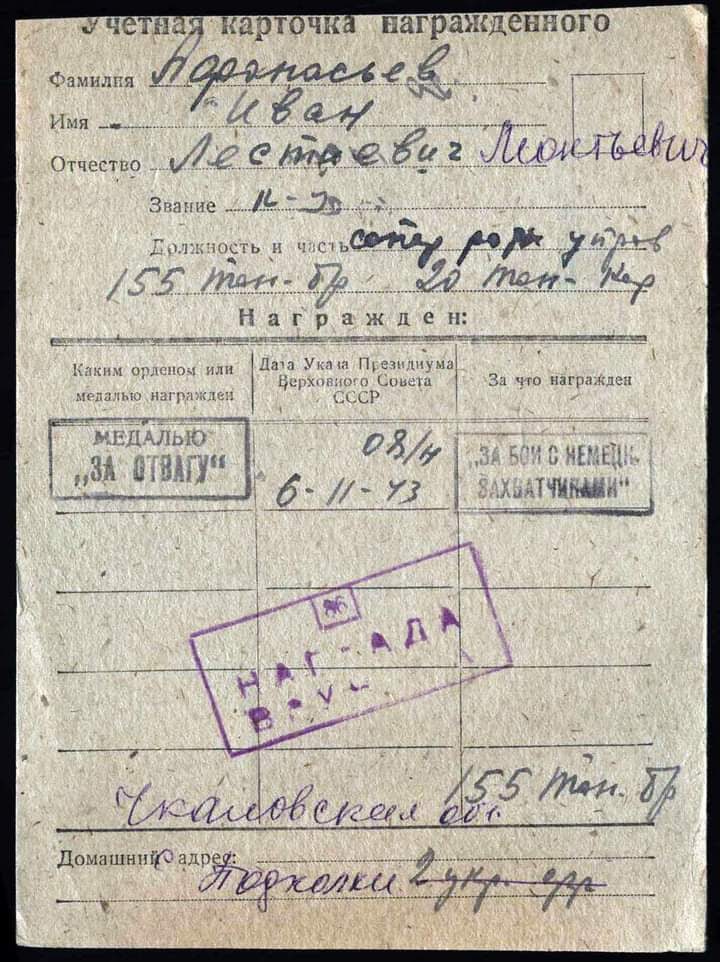 Учетная карточка награжденного
Фамилия Афонасьев
Имя Иван
Отчество Лестиевич Леонтьевич
Звание к-ц
Должность и часть сапер роты управ
155 тан-бр 20 тан-кор
Награжден:
Каким орденом или медалью награжден
Дата Указа Президиума Верховного Совета СССР
За что награжден
МЕДАЛЬЮ
„ЗА ОТВАГУ“
08/н
6-11-43
„ЗА БОИ С НЕМЕЦК.
ЗАХВАТЧИКАМИ“
86
НАГРАДА
ВРУЧ
155 тан. бр
Чкаловская обл.
Домашний адрес:
Подколки 2 укр. фр